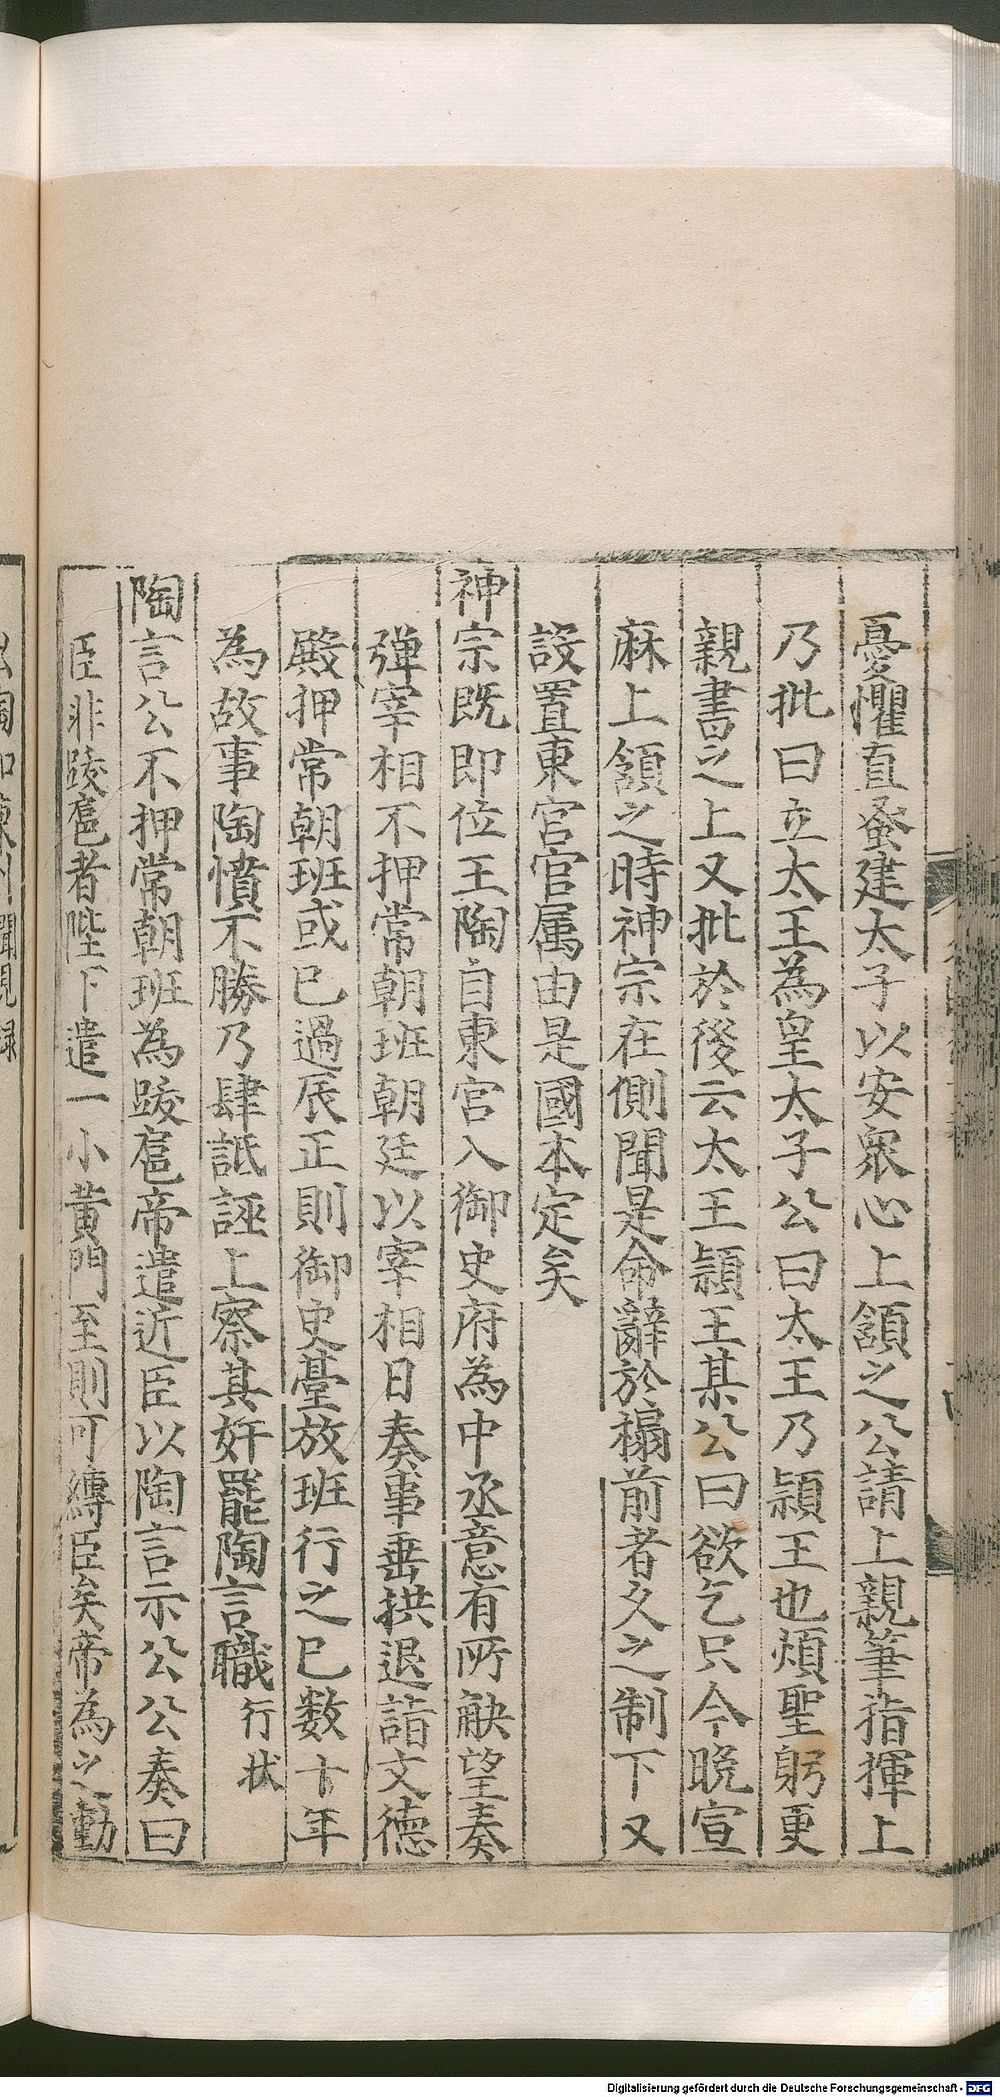 憂懼宜蚤建太子以安衆心上頷之公請上親筆指揮上
乃批曰立大王為皇太子公曰大王乃潁王也煩聖躬更
親書之上又批於後云大王潁王某公曰欲乞只今晚宣
麻上頷之時神宗在側聞是命辭於榻前者久之制下又
設置東宮官属由是國本定矣
神宗既即位王陶自東宮入御史府為中丞意有所觖望奏
彈宰相不押常朝班朝廷以宰相日奏事垂拱退詣文德
殿押常朝班或已過辰正則御史臺放班行之已数十年
為故事陶憤不勝乃肆詆誣上察其奸罷陶言職行状
陶言公不押常朝班為跋扈帝遣近臣以陶言示公公奏曰
臣非跋扈者陛下遣一小黄門至則可縛臣矣帝為之動
出陶知陳州聞見録
Digitalisierung gefördert durch die Deutsche Forschungsgemeinschaft - DFG